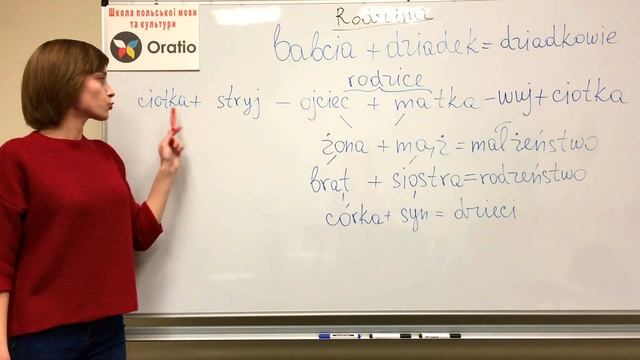 Школа польської мови
та культури
Oratio
Rodzina
babcia + dziadek = dziadkowie
rodzice
ciotka + stryj - ojciec + matka - wuj + ciotka
żona + mąż = małżeństwo
brat + siostra = rodzeństwo
córka + syn = dzieci